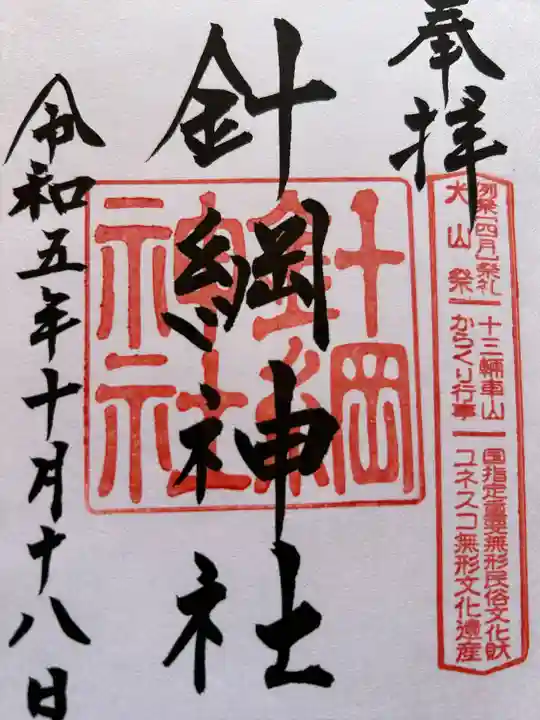 奉拝
例祭(四月)祭礼 十三輛車山 国指定重要無形民俗文化財
犬山祭 からくり行事 ユネスコ無形文化遺産
針綱神社
針綱神社
令和五年十月十八日